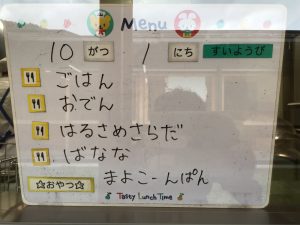 Menu
10 がつ 1 にち すいようび
ごはん
おでん
はるさめさらだ
ばなな
☆おやつ☆ まよこーんぱん
Tasty Lunch Time